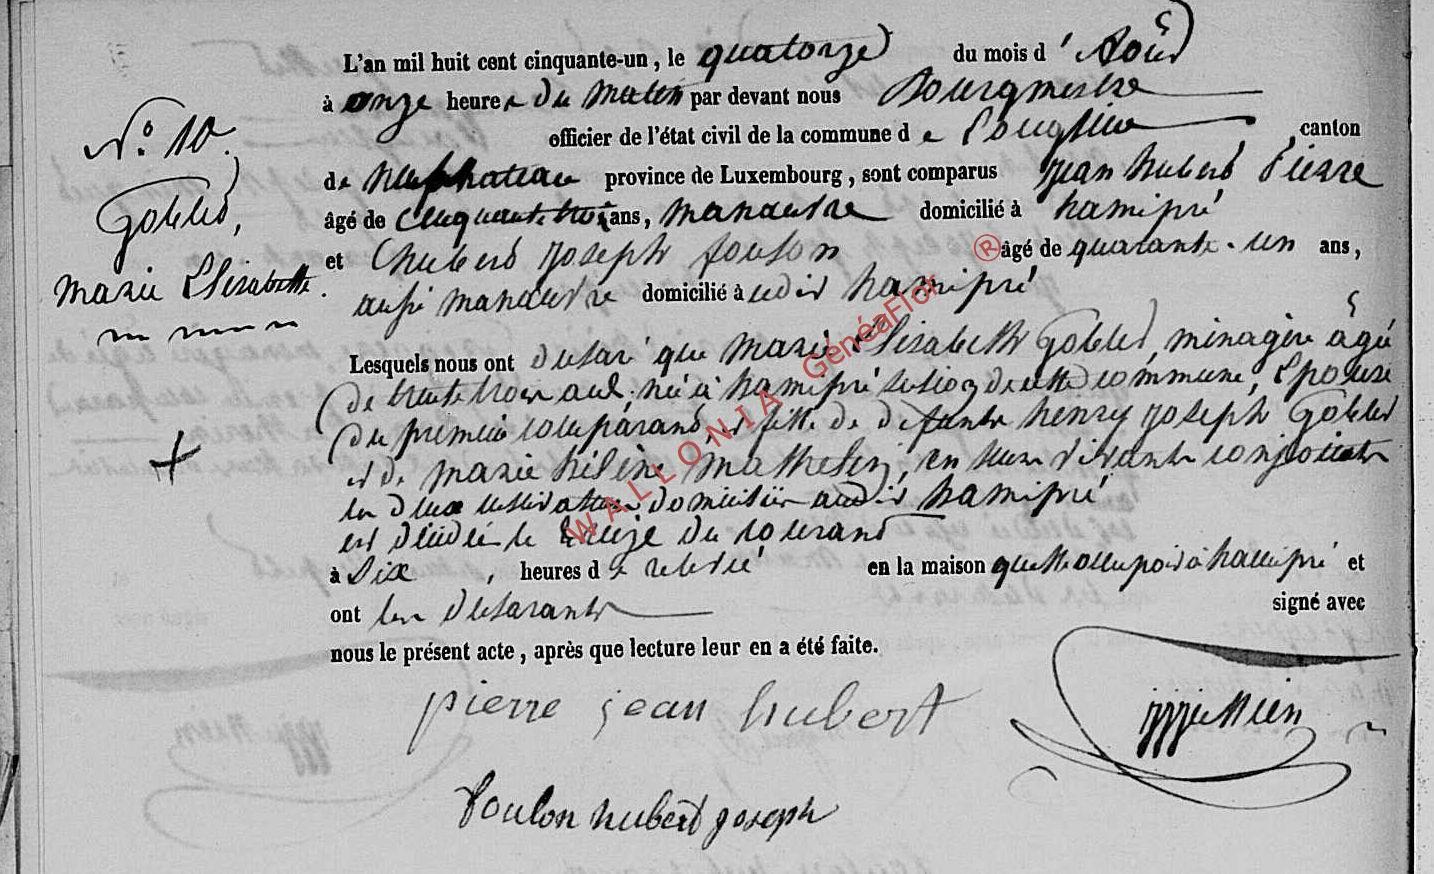 L'an mil huit cent cinquante-un, le quatorze du mois d' Août
à onze heures du matin par devant nous Bourgmestre
N.º 10. officier de l'état civil de la commune de Longlier canton
de Neufchateau province de Luxembourg, sont comparus Jean hubert Pierre
Goblet, âgé de cinquante trois ans, manœuvre domicilié à hamipré
et hubert Joseph foulon âgé de quarante-un ans,
marie Elisabeth.
aussi manœuvre domicilié à udit hamipré
Lesquels nous ont déclaré que Marie Elisabeth Goblet, ménagère âgée
de trente trois ans, née à hamipré section de cette commune, Epouse
du premier comparant, et fille de défunts henry Joseph Goblet
et de marie hélène Mathelin, en leur vivants conjoints
les deux domiciliés audit hamipré
est décédée le treize du courant
à Six, heures de relevé en la maison qu'elle occupoit à hamipré et
ont les déclarants signé avec
nous le présent acte, après que lecture leur en a été faite.
pierre jean hubert
foulon hubert joseph
WALLONIA GenéaFlor ®